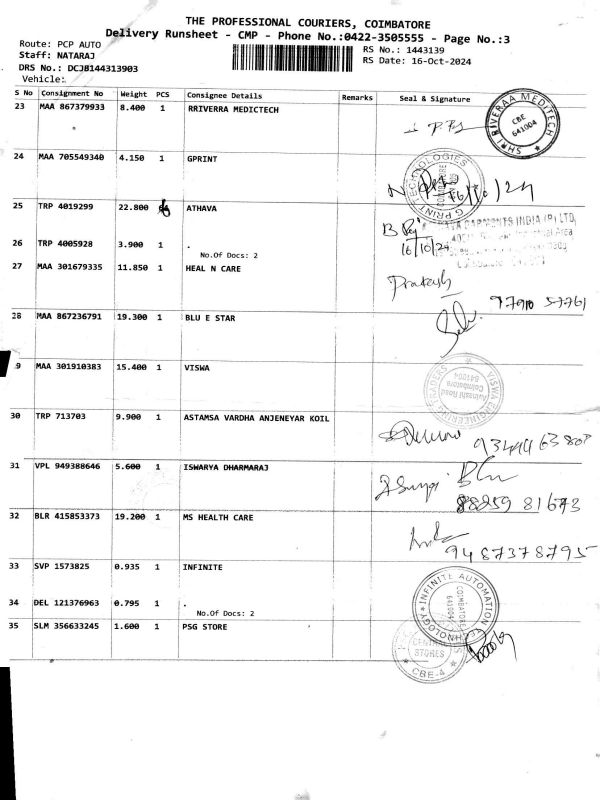 THE PROFESSIONAL COURIERS, COIMBATORE
Delivery Runsheet - CMP - Phone No.:0422-3505555 - Page No.:3
Route: PCP AUTO
Staff: NATARAJ
DRS No.: DCJB144313903
Vehicle:
RS No.: 1443139
RS Date: 16-Oct-2024
S No Consignment No Weight PCS Consignee Details Remarks Seal & Signature
23 MAA 867379933 8.400 1 RRIVERRA MEDICTECH
SHRI RIVERAA MEDITECH
CBE
641004
24 MAA 705549340 4.150 1 GPRINT
G PRINT TECHNOLOGIES
16/10/24
25 TRP 4019299 22.800 ATHAVA
GARMENTS INDIA (P) LTD,
16/10/24
26 TRP 4005928 3.900 1 .
No.Of Docs: 2
27 MAA 301679335 11.850 1 HEAL N CARE
Prakash
97910 57761
28 MAA 867236791 19.300 1 BLU E STAR
9 MAA 301910383 15.400 1 VISWA
VISWA ENGINEERING TRADERS
Avinashi Road
Coimbatore
641004
30 TRP 713703 9.900 1 ASTAMSA VARDHA ANJENEYAR KOIL
31 VPL 949388646 5.600 1 ISWARYA DHARMARAJ
88259 81673
32 BLR 415853373 19.200 1 MS HEALTH CARE
9487378795
33 SVP 1573825 0.935 1 INFINITE
INFINITE AUTOMATION TECHNOLOGY
COIMBATORE
641004
34 DEL 121376963 0.795 1 .
No.Of Docs: 2
35 SLM 356633245 1.600 1 PSG STORE
CENTRAL
STORES
CBE-4